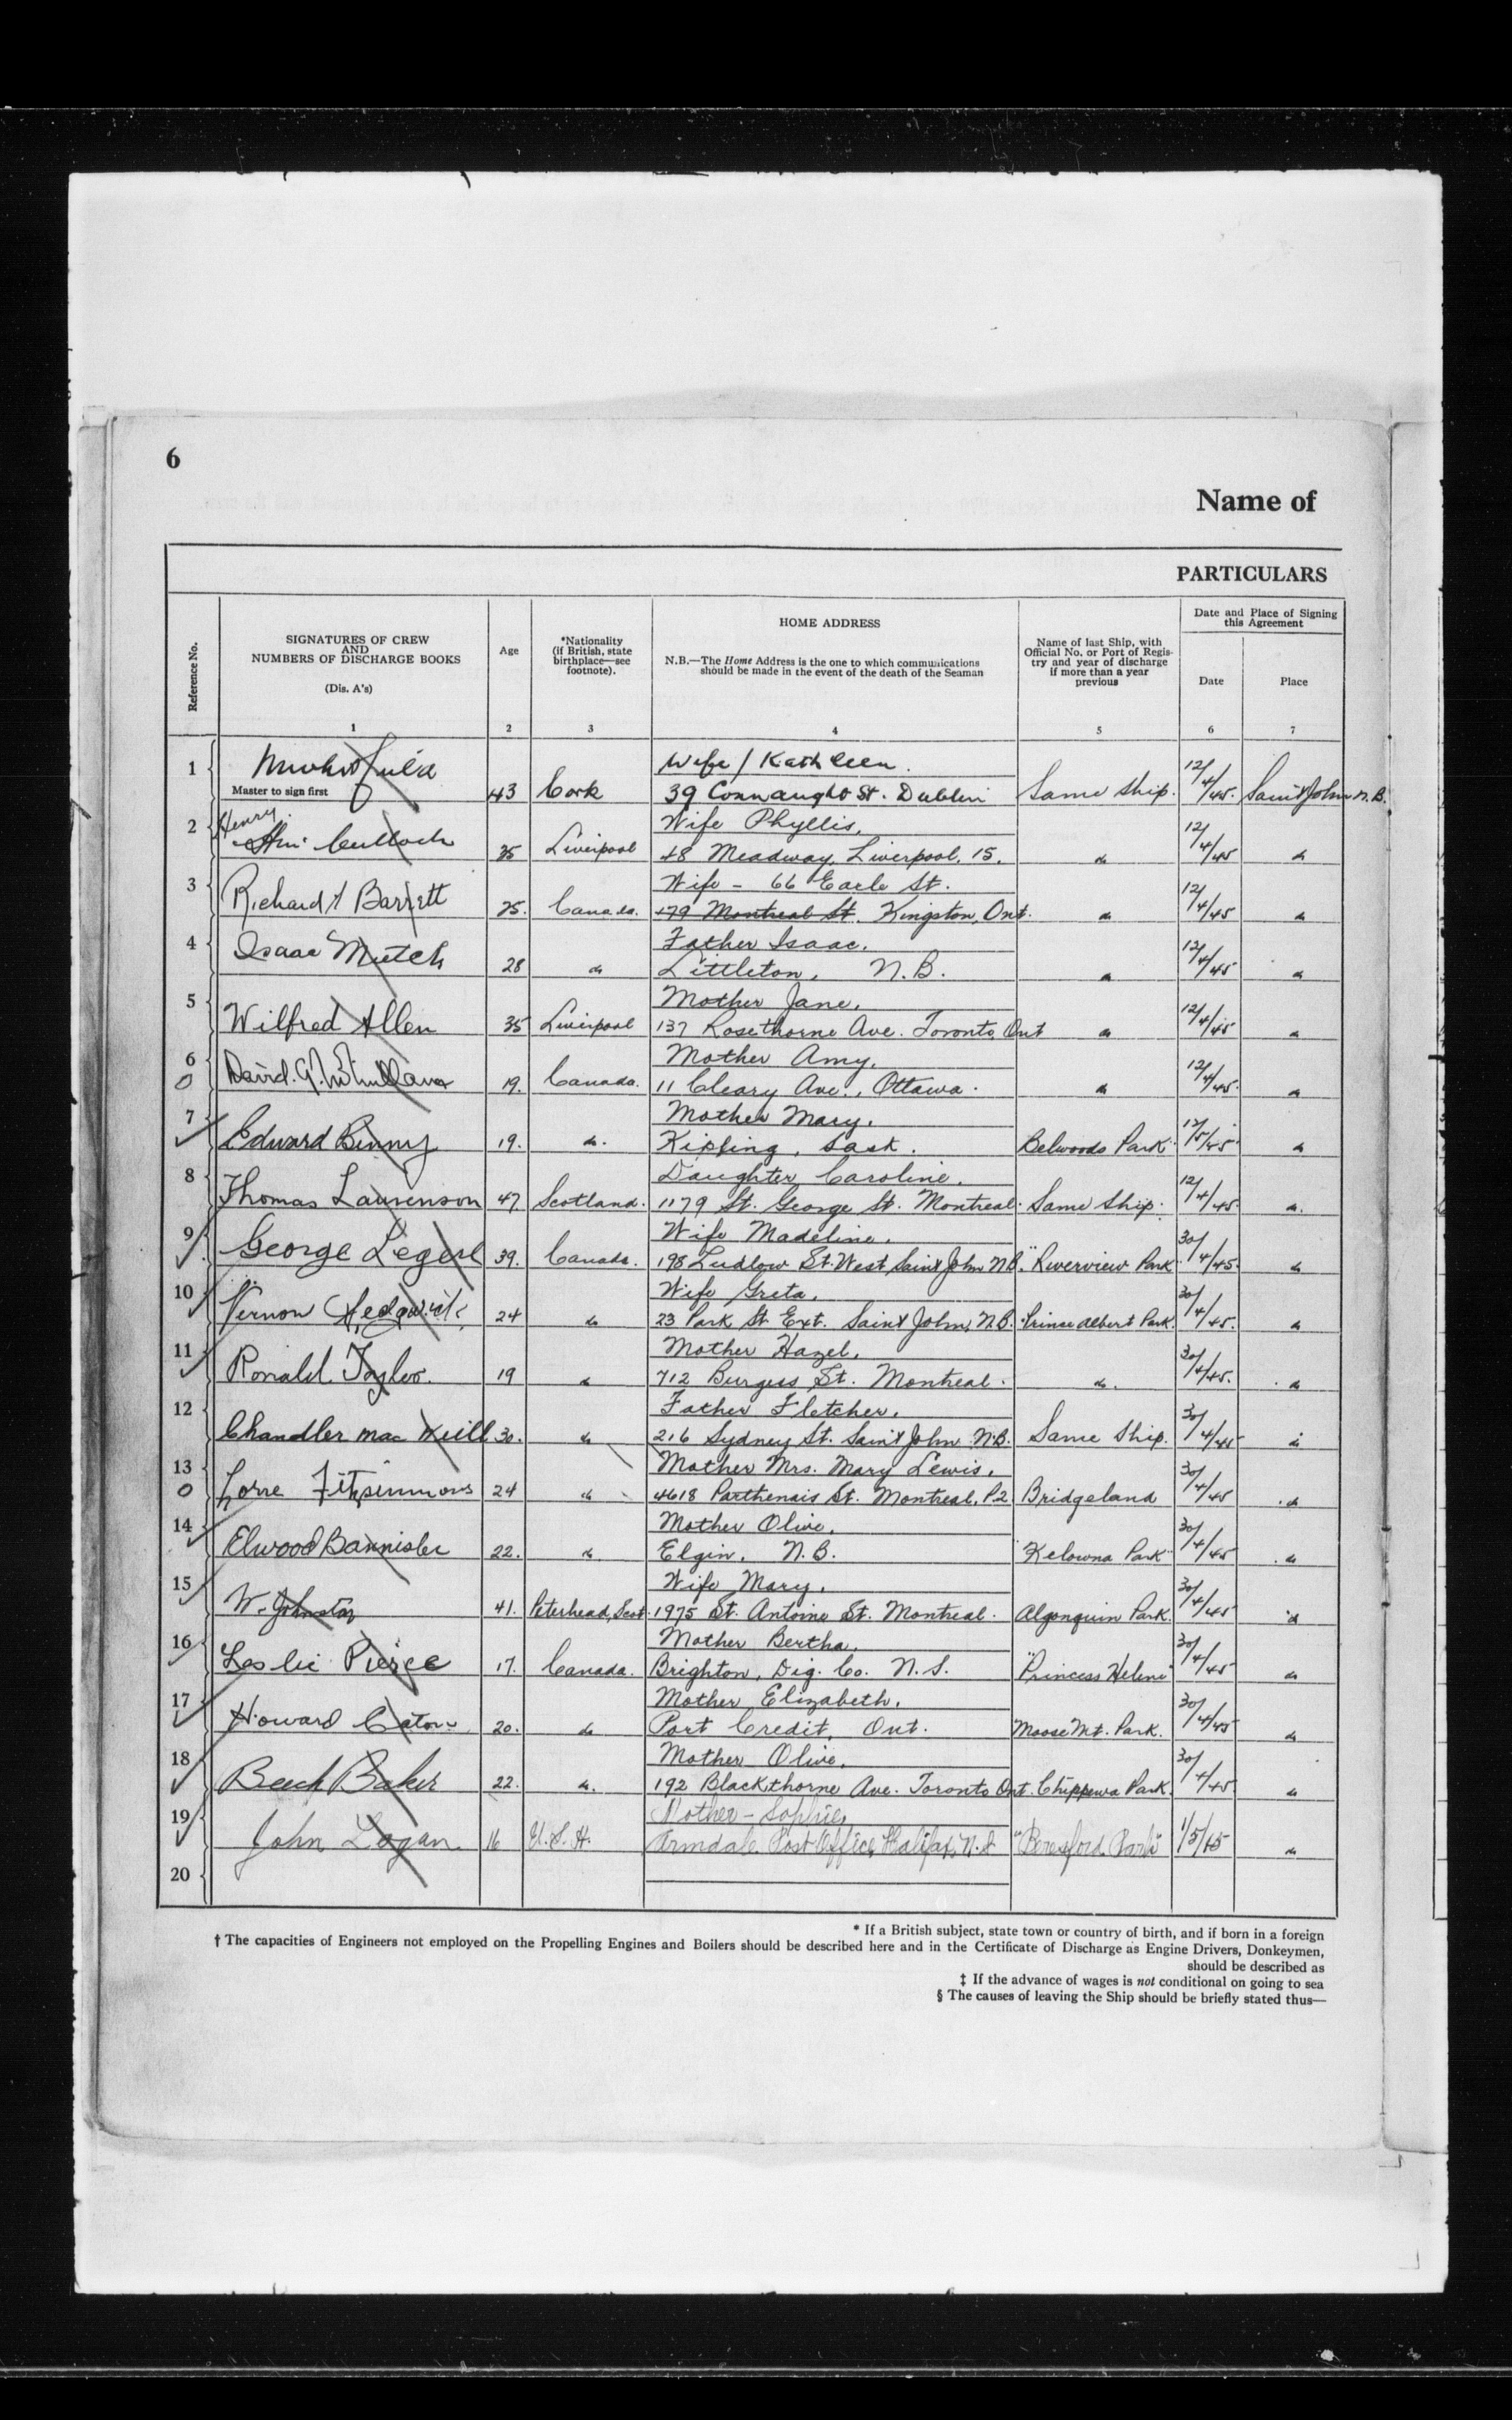 6
Name of
PARTICULARS
Reference No.
SIGNATURES OF CREW
AND
NUMBERS OF DISCHARGE BOOKS
(Dis. A's)
1
Age
2
*Nationality
(if British, state
birthplace—see
footnote).
3
HOME ADDRESS
N.B.—The Home Address is the one to which communications
should be made in the event of the death of the Seaman
4
Name of last Ship, with
Official No. or Port of Regis-
try and year of discharge
if more than a year
previous
5
Date and Place of Signing
this Agreement
Date
6
Place
7
1
Wife / Kathleen.
Master to sign first 43 Cork 39 Connaught St. Dublin Same Ship. 12/4/45. Saint John N.B.
2 Henry Wife Phyllis,
Culloch 35 Liverpool 48 Meadway, Liverpool, 15. do 12/4/45 do
3 Wife - 66 Earle St.
Richard Barrett 25. Canada. 479 Montreal St. Kingston, Ont. do 12/4/45 do
4 Father Isaac,
Isaac Mutch 28 do Littleton, N.B. do 12/4/45 do
5 Mother Jane,
Wilfred Allen 35 Liverpool 137 Rosethorne Ave. Toronto, Ont do 12/4/45 do
6 Mother Amy,
David. G. 19. Canada. 11 Cleary Ave., Ottawa. do 12/4/45. do
7 Mother Mary,
Edward Binny 19. do. Kipling, Sask. Belwoods Park 12/5/45. do
8 Daughter Caroline,
Thomas Laurenson 47 Scotland. 1179 St. George St. Montreal. Same Ship. 12/4/45. do.
9 Wife Madeline,
George Legere 39. Canada. 198 Ludlow St. West Saint John N.B. "Riverview Park" 30/4/45. do
10 Wife Greta,
Vernon Hedgwick 24 do 23 Park St. Ext. Saint John, N.B. "Prince Albert Park. 30/4/45. do
11 Mother Hazel,
Ronald Taylor. 19 do 712 Burgess St. Montreal. do. 30/4/45. do
12 Father Fletcher,
Chandler Mac Neill 30. do 216 Sydney St. Saint John N.B. Same Ship. 30/4/45 do
13 Mother Mrs. Mary Lewis,
Lorne Fitzsimmons 24 do 4618 Parthenais St. Montreal, P2 Bridgeland 30/4/45 do
14 Mother Olive,
Elwood Bannister 22. do Elgin, N.B. "Kelowna Park" 30/4/45 do
15 Wife Mary,
W. Johnston 41. Peterhead, Scot. 1975 St. Antoine St. Montreal. Algonquin Park. 30/4/45 do
16 Mother Bertha,
Leslie Pierce 17. Canada. Brighton, Dig. Co. N.S. "Princess Helene" 30/4/45 do
17 Mother Elizabeth,
Howard Eaton 20. do Port Credit, Ont. "Moose Mt. Park. 30/4/45 do
18 Mother Olive,
Beech Baker 22. do. 192 Blackthorne Ave. Toronto Ont. Chippewa Park. 30/4/45 do
19 Mother - Sophie,
John Logan 16 Armdale Post Office, Halifax, N.S "Beresford Park" 1/5/45 do
20
* If a British subject, state town or country of birth, and if born in a foreign
† The capacities of Engineers not employed on the Propelling Engines and Boilers should be described here and in the Certificate of Discharge as Engine Drivers, Donkeymen,
should be described as
‡ If the advance of wages is not conditional on going to sea
§ The causes of leaving the Ship should be briefly stated thus—